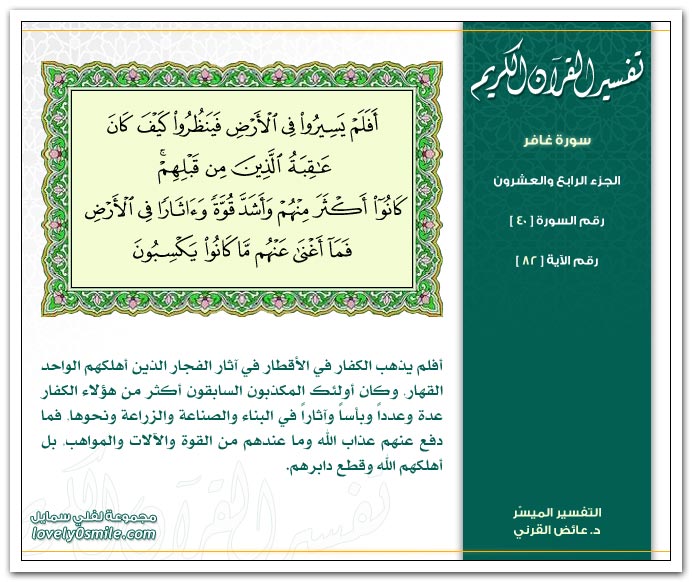 تفسير القرآن الكريم
سورة غافر
الجزء الرابع والعشرون
رقم السورة [ ٤٠ ]
رقم الآية [ ٨٢ ]
أَفَلَمْ يَسِيرُوا۟ فِى ٱلْأَرْضِ فَيَنظُرُوا۟ كَيْفَ كَانَ
عَـٰقِبَةُ ٱلَّذِينَ مِن قَبْلِهِمْ ۚ
كَانُوٓا۟ أَكْثَرَ مِنْهُمْ وَأَشَدَّ قُوَّةً وَءَاثَارًا فِى ٱلْأَرْضِ
فَمَآ أَغْنَىٰ عَنْهُم مَّا كَانُوا۟ يَكْسِبُونَ
أفلم يذهب الكفار في الأقطار في آثار الفجار الذين أهلكهم الواحد
القهار، وكان أولئك المكذبون السابقون أكثر من هؤلاء الكفار
عدة وعدداً وبأساً وآثاراً في البناء والصناعة والزراعة ونحوها، فما
دفع عنهم عذاب الله وما عندهم من القوة والآلات والمواهب، بل
أهلكهم الله وقطع دابرهم.
التفسير الميسّر
د. عائض القرني
مجموعة لفلي سمايل
lovely0smile.com
تفسير القرآن الكريم